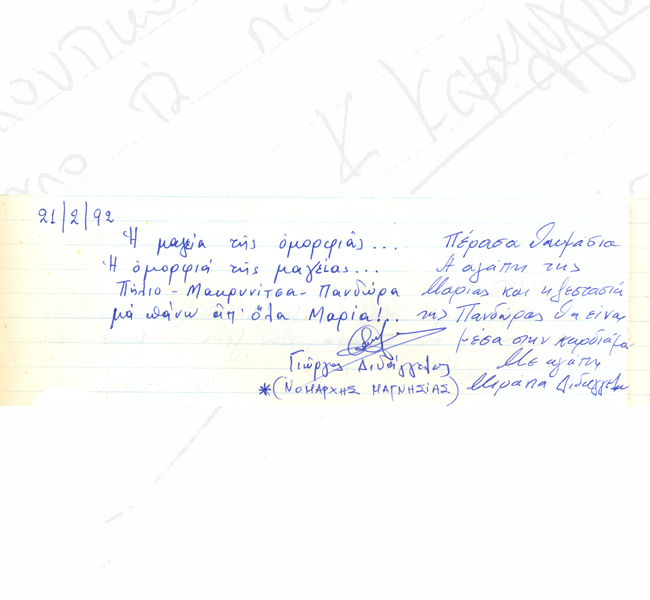 21/2/92
Ἡ μαγεία τῆς ὀμορφιᾶς...
Ἡ ὀμορφιά τῆς μαγείας...
Πήλιο - Μακρυνίτσα - Πανδώρα
μά πάνω ἀπ' ὅλα Μαρία!..
Γιώργος Διδάγγελος
*(ΝΟΜΑΡΧΗΣ ΜΑΓΝΗΣΙΑΣ)
Πέρασα θαυμάσια
Η αγάπη της
Μαρίας και η ζεστασιά
της Πανδώρας θα είναι
μέσα στην καρδιά μας
Με αγάπη
Διδαγγελου